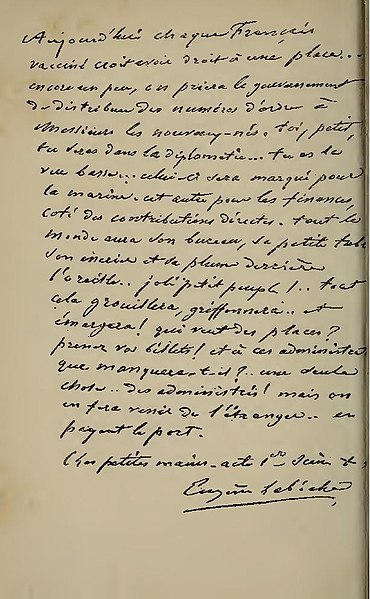 Aujourd'hui chaque Français
vacciné croit avoir droit à une place...
encore un peu, on priera le gouvernement
de distribuer des numéros d'ordre à
Messieurs les nouveaux-nés. toi, petit,
tu seras dans la diplomatie... tu as la
vue basse... celui-ci sera marqué pour
la marine. cet autre pour les finances,
coté des contributions directes. tout le
monde aura son bureau, sa petite table
son encrier et sa plume derrière
l'oreille.. joli petit peuple!.. tout
cela grouillera, griffonnera.. et
émargera! qui veut des places?
prenez vos billets! et à ces administra
que manquera-t-il?.. une seule
chose.. des administrés! mais on
en fera venir de l'étranger.. en
payant le port.
Les petites mains. acte 1er Scène
Eugène Labiche